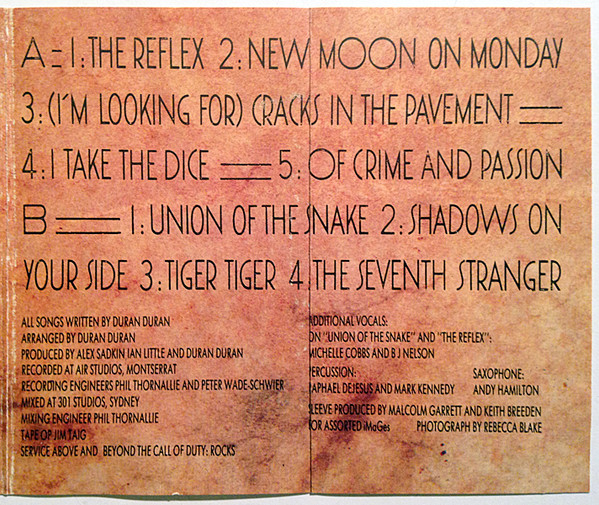 A = 1: THE REFLEX 2: NEW MOON ON MONDAY
3: (I'M LOOKING FOR) CRACKS IN THE PAVEMENT
4: I TAKE THE DICE 5: OF CRIME AND PASSION
B 1: UNION OF THE SNAKE 2: SHADOWS ON
YOUR SIDE 3: TIGER TIGER 4: THE SEVENTH STRANGER
ALL SONGS WRITTEN BY DURAN DURAN
ARRANGED BY DURAN DURAN
PRODUCED BY ALEX SADKIN IAN LITTLE AND DURAN DURAN
RECORDED AT AIR STUDIOS, MONTSERRAT
RECORDING ENGINEERS PHIL THORNALLIE AND PETER WADE-SCHWIER
MIXED AT 301 STUDIOS, SYDNEY
MIXING ENGINEER PHIL THORNALLIE
TAPE OP JIM TAIG
SERVICE ABOVE AND BEYOND THE CALL OF DUTY: ROCKS
ADDITIONAL VOCALS:
ON "UNION OF THE SNAKE" AND "THE REFLEX":
MICHELLE COBBS AND B J NELSON
PERCUSSION:
RAPHAEL DEJESUS AND MARK KENNEDY
SAXOPHONE:
ANDY HAMILTON
SLEEVE PRODUCED BY MALCOLM GARRETT AND KEITH BREEDEN
FOR ASSORTED iMaGes PHOTOGRAPH BY REBECCA BLAKE